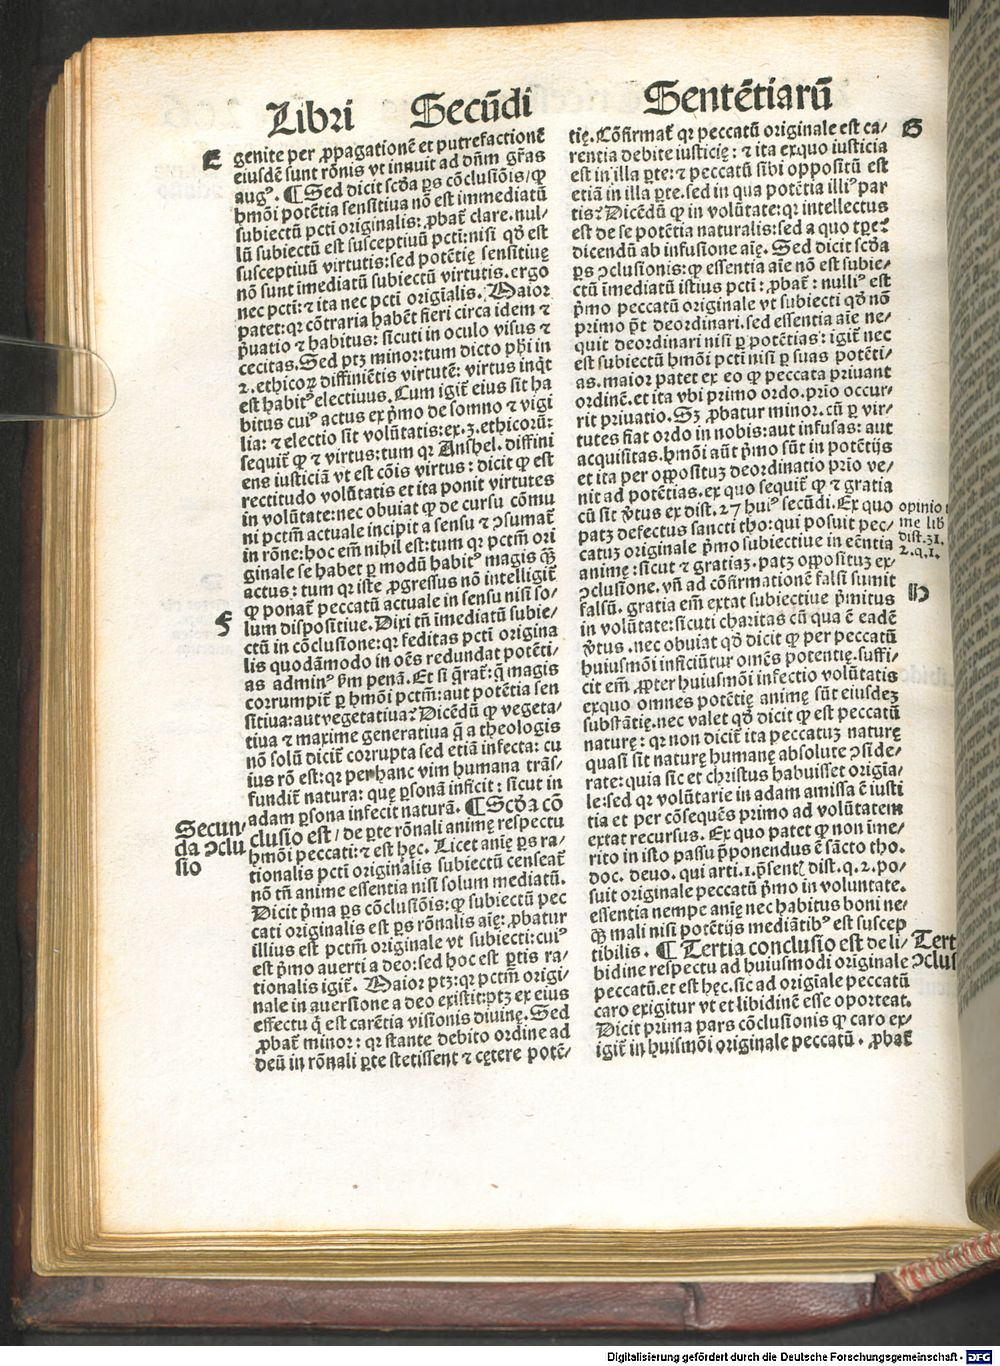 Libri Secūdi Sentētiarū
E
genite per ꝓpagationē et putrefactionē
eiusdē sunt rōnis vt innuit ad dn̄m gr̄as
augꝰ. ¶ Sed dicit scd̄a ꝑs cōclusiōis/ ꝙ
hmōi potētia sensitiua nō est immediatū
subiectū pcti originalis: ꝓbat̄ clare. nul-
lū subiectū est susceptiuū pcti: nisi qd̄ est
susceptiuū virtutis: sed potētię sensitiuę
nō sunt imediatū subiectū virtutis. ergo
nec pcti: ⁊ ita nec pcti origīalis. Maior
patet: qꝛ cōtraria habēt fieri circa idem ⁊
p̄uatio ⁊ habitus: sicuti in oculo visus ⁊
cecitas. Sed ptꝫ minor: tum dicto ph̄i in
2. ethicoꝝ diffiniētis virtutē: virtus inq̄t
est habitꝰ electiuus. Cum igit̄ eius sit ha
bitus cuiꝰ actus ex p̄mo de somno ⁊ vigi
lia: ⁊ electio sit volūtatis: ex. 3. ethicorū:
sequit̄ ꝙ ⁊ virtus: tum qꝛ Anshel. diffini
ens iusticiā vt est cōis virtus: dicit ꝙ est
rectitudo volūtatis et ita ponit virtutes
in volūtate: nec obuiat ꝙ de cursu cōmu
ni pctm̄ actuale incipit a sensu ⁊ ꝯsumat̄
in rōne: hoc em̄ nihil est: tum qꝛ pctm̄ ori
ginale se habet ꝑ modū habitꝰ magis q̄ꝫ
actus: tum qꝛ iste ꝓgressus nō intelligit̄
ꝙ ponat̄ peccatū actuale in sensu nisi so-
F
lum dispositiue. Dixi tn̄ imediatū subie-
ctū in cōclusione: qꝛ feditas pcti origina
lis quodāmodo in oēs redundat potēti-
as adminꝰ ẜm penā. Et si q̄rat̄: q̄ magis
corrumpit̄ ꝑ hmōi pctm̄: aut potētia sen
sitiua: aut vegetatiua? Dicēdū ꝙ vegeta-
tiua ⁊ maxime generatiua q̄ a theologis
nō solū dicit̄ corrupta sed etiā infecta: cu
ius rō est: qꝛ per hanc vim humana trās/
fundit̄ natura: quę ꝑsonā inficit: sicut in
adam ꝑsona infecit naturā. ¶ Scd̄a cō
Secun-
da ꝯclu
sio
clusio est/ de ꝑte rōnali animę respectu
hmōi peccati: ⁊ est hęc. Licet anię ꝑs ra-
tionalis pcti originalis subiectū censeat̄
nō tn̄ anime essentia nisi solum mediatū.
Dicit p̄ma ꝑs cōclusiōis: ꝙ subiectū pec
cati originalis est ꝑs rōnalis aię: ꝓbatur
illius est pctm̄ originale vt subiecti: cuiꝰ
est p̄mo auerti a deo: sed hoc est ꝑtis ra-
tionalis igit̄. Maior ptꝫ: qꝛ pctm̄ origi-
nale in auersione a deo existit: ptꝫ ex eius
effectu q̄ est carētia visionis diuinę. Sed
ꝓbat̄ minor: qꝛ stante debito ordine ad
deū in rōnali ꝑte stetissent ⁊ cętere potē-
G
tię. Cōfirmat̄ qꝛ peccatū originale est ca/
rentia debite iusticię: ⁊ ita ex quo iusticia
est in illa ꝑte: ⁊ peccatū sibi oppositū est
etiā in illa ꝑte. sed in qua potētia illiꝰ par
tis? Dicēdū ꝙ in volūtate: qꝛ intellectus
est de se potētia naturalis: sed a quo tꝑe?
dicendū ab infusione aię. Sed dicit scd̄a
ꝑs ꝯclusionis: ꝙ essentia aie nō est subie-
ctū imediatū istius pcti: ꝓbat̄: nulliꝰ est
p̄mo peccatū originale vt subiecti qd̄ nō
primo p̄t deordinari. sed essentia aie ne-
quit deordinari nisi ꝑ potētias: igit̄ nec
est subiectū hmōi pcti nisi ꝑ suas potēti-
as. maior patet ex eo ꝙ peccata priuant
ordinē. et ita vbi primo ordo. prio occur-
rit priuatio. Sꝫ ꝓbatur minor. cū ꝑ vir-
tutes fiat ordo in nobis: aut infusas: aut
acquisitas. hmōi aūt p̄mo sūt in potētijs
et ita per oppositūꝫ deordinatio prio ve-
nit ad potētias. ex quo sequit̄ ꝙ ⁊ gratia
cū sit v̄tus ex dist. 27 huiꝰ secūdi. Ex quo
patꝫ defectus sancti tho: qui posuit pec-
catuꝫ originale p̄mo subiectiue in eēntia
animę: sicut ⁊ gratiaꝫ. patꝫ oppositūꝫ ex
opinio
me lib
dist. 31.
2. q. 1.
H
ꝯclusione. vn̄ ad cōfirmationē falsi sumit
falsū. gratia em̄ extat subiectiue p̄mitus
in volūtate: sicuti charitas cū qua ē eadē
v̄tus. nec obuiat qd̄ dicit ꝙ per peccatū
huiusmōi inficiūtur omēs potentię. suffi-
cit em̄ ꝓpter huiusmōi infectio volūtatis
ex quo omnes potētię animę sūt eiusdeꝫ
substātię. nec valet qd̄ dicit ꝙ est peccatū
naturę: qꝛ non dicit̄ ita peccatuꝫ naturę
quasi sit naturę humanę absolute ꝯside-
rate: quia sic et christus habuisset origīa/
le: sed qꝛ volūtarie in adam amissa ē iusti
tia et per cōsequēs primo ad volūtatem
extat recursus. Ex quo patet ꝙ non ime-
rito in isto passu p̄ponendus ē sācto tho.
doc. deuo. qui arti. 1. p̄sent̄ dist. q. 2. po-
suit originale peccatū p̄mo in voluntate.
essentia nempe anię nec habitus boni ne-
q̄ mali nisi potētijs mediātibꝰ est suscep
tibilis. ¶ Tertia conclusio est de li/
Tert
ꝯclus
bidine respectu ad huiusmodi originale
peccatū. et est hęc. sic ad origīale peccatū
caro exigitur vt et libidinē esse oporteat.
Dicit prima pars cōclusionis ꝙ caro ex-
igit̄ in huismōi originale peccatū. ꝓbat̄
Digitalisierung gefördert durch die Deutsche Forschungsgemeinschaft - DFG